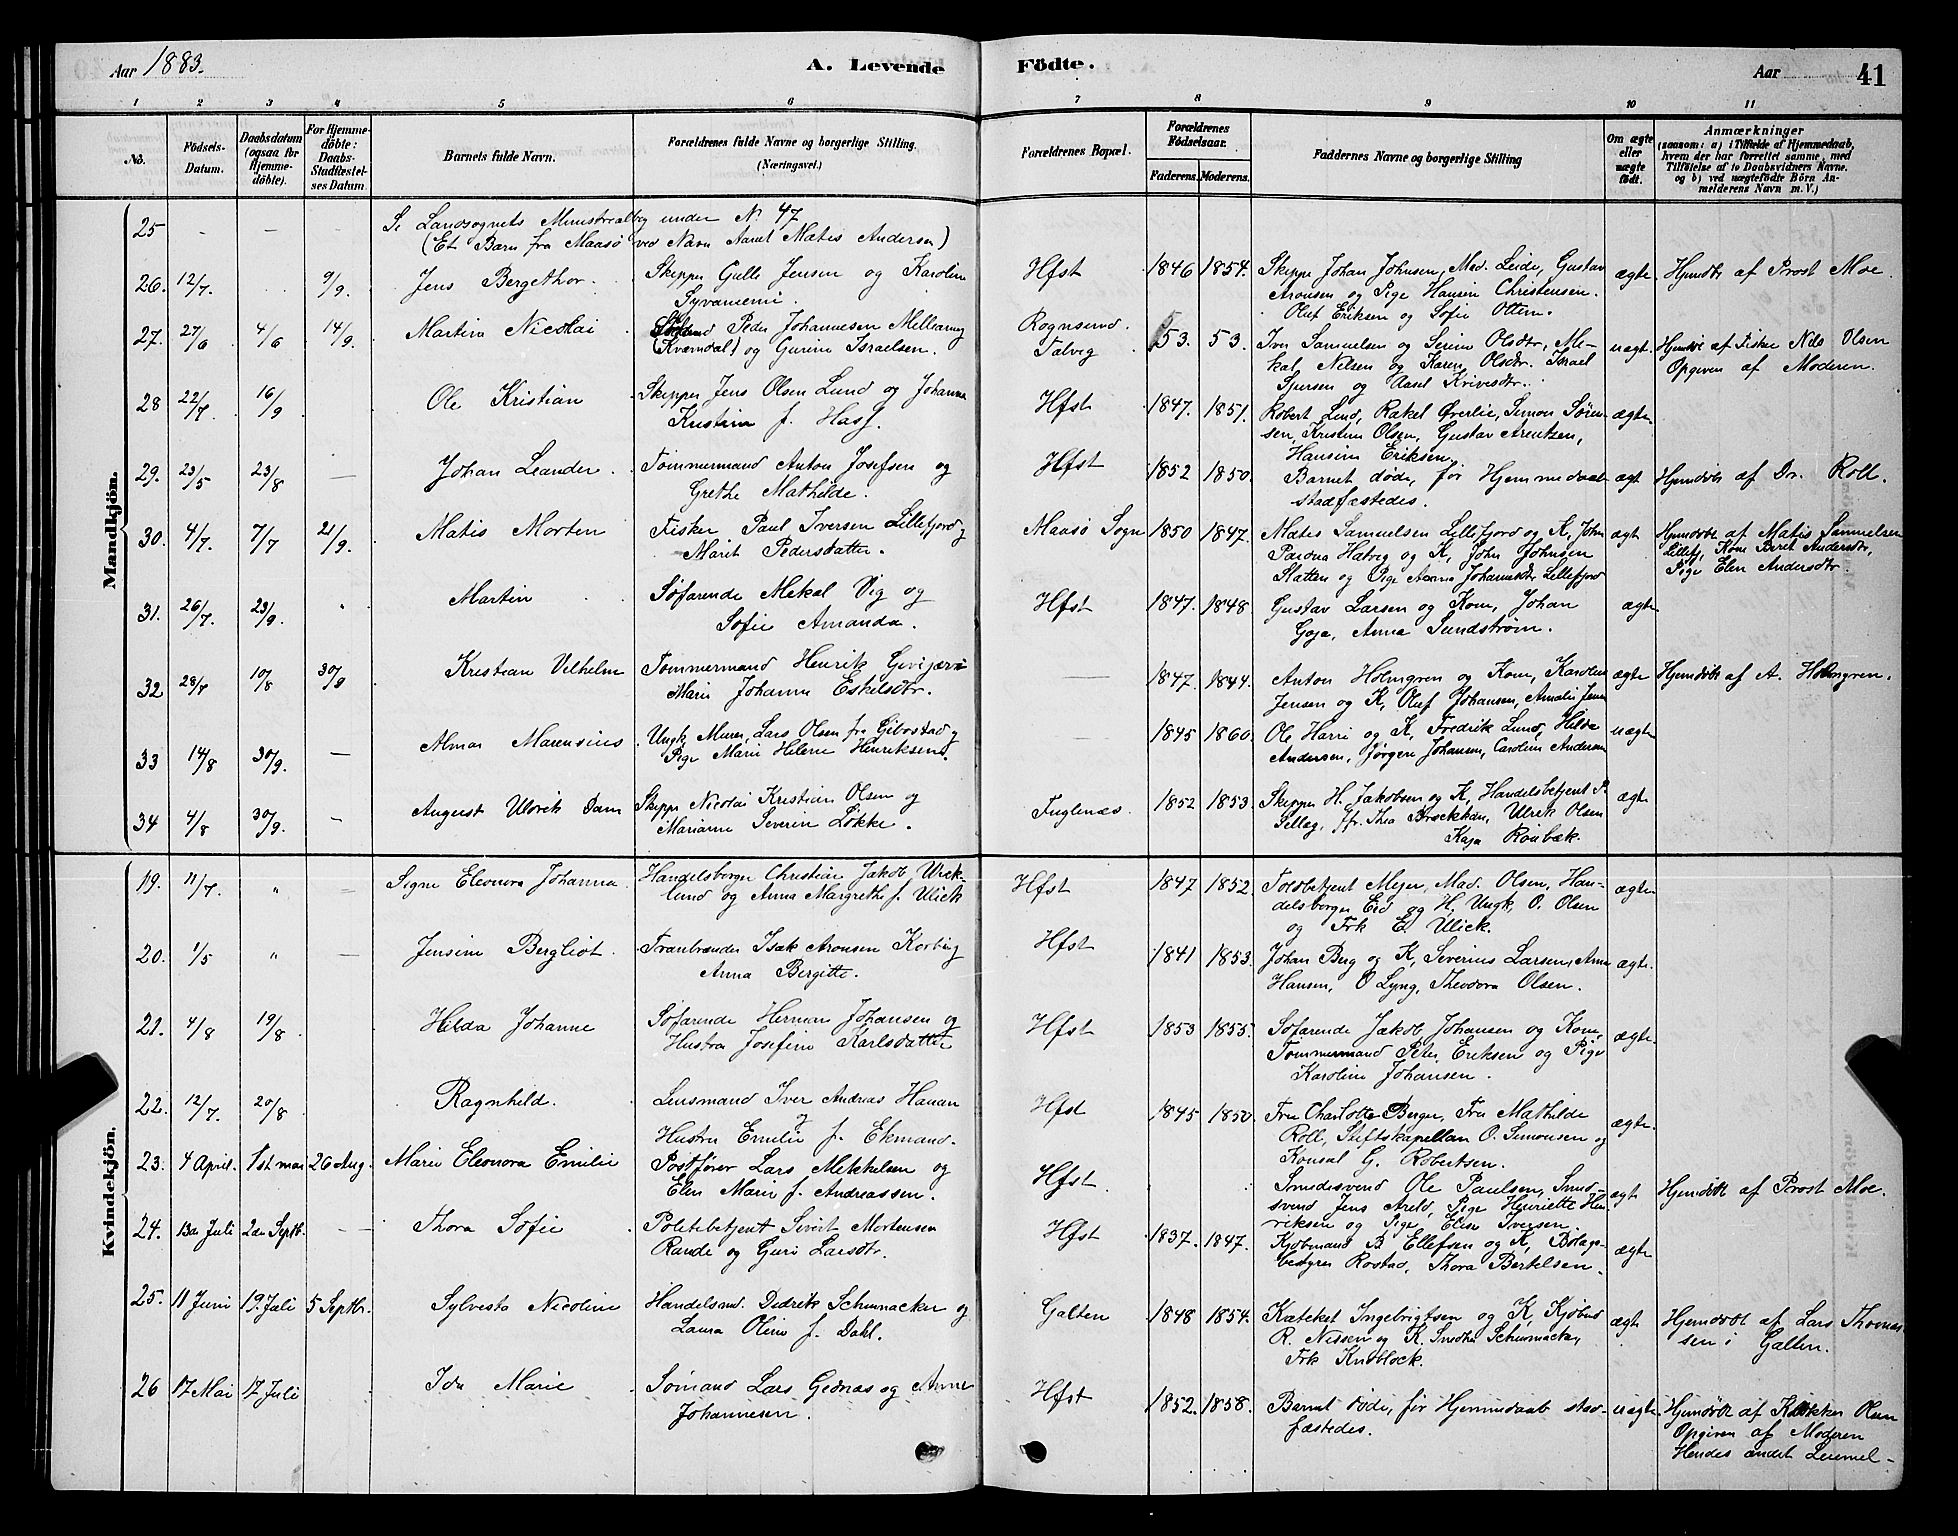 Aar 1883.
A. Levende Födte.
Aar 41
1 2 3 4 5 6 7 8 9 10 11
No. Födsels-Datum. Daabsdatum (ogsaa for Hjemme-döbte). For Hjemme-döbte: Daabs-Stadfæstel-ses Datum. Barnets fulde Navn. Forældrenes fulde Navne og borgerlige Stilling. (Næringsvei.) Forældrenes Bopæl. Forældrenes Födselsaar. Faderens. Moderens. Faddernes Navne og borgerlige Stilling Om ægte eller uægte födt. Anmærkninger (saasom: a) i Tilfælde af Hjemmedaab, hvem der har forrettet samme, med Tilföielse af to Daabsvidners Navne, og b) ved uægtefödte Börn An-melderens Navn m. V.)
Mandkjön.
25 - - - Se Landsognets Ministrealbog under No 47
(Et Barn fra Maasö ved Navn Aanet Matis Andersen)
26. 12/7. 9/9. Jens Bergethor. Skipper Gulle Jensen og Karoline
Syvaniemi. Hfst 1846 1854. Skipper Johan Johnsen, Mad. Leide, Gustav
Aronsen og Pige Hansine Christensen.
Oluf Eriksen og Sofie Ottem. ægte Hjemdöbt af Prost Moe.
27. 27/6 4/6 14/9. Martin Nicolai Peder Johannesen Melleanug
(Kvændal) og Gurine Israelsen. Rognsund.
Talvig 53. 53. Iver Samuelsen og Serine Olsdtr, Me-
kal Nilsen og Karen Olsdtr. Israel
og Aasel uægt. Hjemdöbt af Fisker Nils Olsen
Opgiven af Moderen.
28 22/7 16/9 Ole Kristian Skipper Jens Olsen Lund og Johanna
Kristine f. Hasf. Hfst 1847. 1851. Robert Lund, Rakel Øverlie, Simon Sören-
sen, Kristine Olsen, Gustav Arentzen,
Hansine Eriksen. ægte
29. 23/5 23/8 — Johan Leander. Tömmermand Anton Josefsen og
Grethe Mathilde. Hfst 1852 1850. Barnet döde, för Hjemmedaab
stadfæstedes. ægt Hjemdöbt af Dr. Roll.
30. 4/7. 7/7 21/9. Matis Morten Fisker Paul Iversen Lillefjord og
Marit Pedersdatter. Maasö Sogn 1850 1847. Mates Samuelsen Lillefjord og K, John
Hatvig og K, John Johnsen
Slatten og Pige Anna Johannsdtr Lillefjord ægt Hjemdöbt af Matis Samuelsen
Lillefj, Kone Berit Andersdtr,
Pige Elen Andersdtr.
31. 26/7. 23/9. " Martin Söfarende Mekal Vig og
Sofie Amanda. Hfst 1847. 1848. Gustav Larsen og Kone, Johan
Goja, Anna Sundström. ægte
32 28/7 10/8 30/9 Kristian Vilhelm Tömmermand Henrik
Marie Johanne Eskelsdtr. — 1847. 1844. Anton Holmgren og Kone, Karoline
Jensen og K, Oluf Johansen, Amalie Jensen ægte Hjemdöbt af A. Holmgren.
33 14/8 30/9. — Almar Marensius Ungk. Murer, Lars Olsen fra Gibostad og
Pige Marie Helene Henriksen. — 1845 1860. Ole Harri og K, Fredrik Lund, Hilda
Andersen, Jörgen Johansen, Caroline Andersen uægte
34 4/8 30/9. — August Ulrik Dam Skipper Nicolai Kristian Olsen og
Marianne Severine Lökke. Fuglenæs. 1852 1853. Skipper H. Jakobsen og K, Handelsbetjent P.
Sellæg, Jfr. Thea Ulrik Olsen
Kaja Rönbæk. ægte
Kvindekjön.
19. 11/7. " — Signe Eleonora Johanna Handelsborger Christian Jakob Wick-
lund og Anna Margrethe f. Ulick Hfst 1847 1852. Toldbetjent Mejer, Mad. Olsen, Han-
delsborger Eid og H, Ungk. O. Olsen
og Frk E Ulick. ægte
20. 1/5 " — Jensine Bergliot. Tranbrænder Isak Aronsen Korbi og
Anna Bergitte. Hfst 1841 1853. Johan Berg og K, Severius Larsen, Anna
Hansen, O Lyng, Theodora Olsen. ægte.
21. 4/8 19/8 Hilda Johanne Söfarende Herman Johansen og
Hustru Josefine Karlsdatter Hfst 1853 1855. Söfarende Jakob Johansen og Kone,
Tömmermand Peter Eriksen og Pige
Karoline Johansen. ægte.
22. 12/7. 20/8 Ragnhild. Lensmand Iver Andreas Hanan
Hustru Emilie f. Ekmand. Hfst 1845 1850. Fru Charlotte Berger, Fru Mathilde
Roll, Stiftskapellan O. Simonsen og
Konsul G. Robertsen. ægte.
23. 4 April. 1st mai 26 Aug. Marie Eleonora Emilie Postförer Lars Mekkelsen og
Elen Marie f. Andreassen. Hfst. Smedesvend Ole Paulsen, Smed-
svend Jens Arild, Pige Henriette Hen-
riksen og Pige Elise Iversen. ægt Hjemdöbt af Prost Moe.
24. 13de Juli 2den Septb. — Thora Sofie Politibetjent Sivert Mortensen
Rande og Guri Larsdtr. Hfst 1837. 1847. Kjöbmand B Ellefsen og K, Bolags-
bestyrer Rostad, Thora Bertelsen. ægte
25. 11 Juni 19. Juli 5 Septbr. Sylvesta Nicoline Handelsmd. Didrik Schumacker og
Laura Oline f. Dahl. Galten 1848 1854. Kateket Ingebrigtsen og K, Kjöbmd
R. Nissen og K, Schumacker,
Frk Knoblock. ægt Hjemdöbt af Lars Thomas
sen i Galten.
26 17 Mai 17 Juli Ida Marie Sömand Lars Gednæs og Anne
Johannesen. Hfst 1852. 1858. Barnet döde, för Hjemmedaab stad-
fæstedes. uægte Hjemdöbt af Klokker Olsen
Opgiven af Moderen
Hendes andet Leiemel-